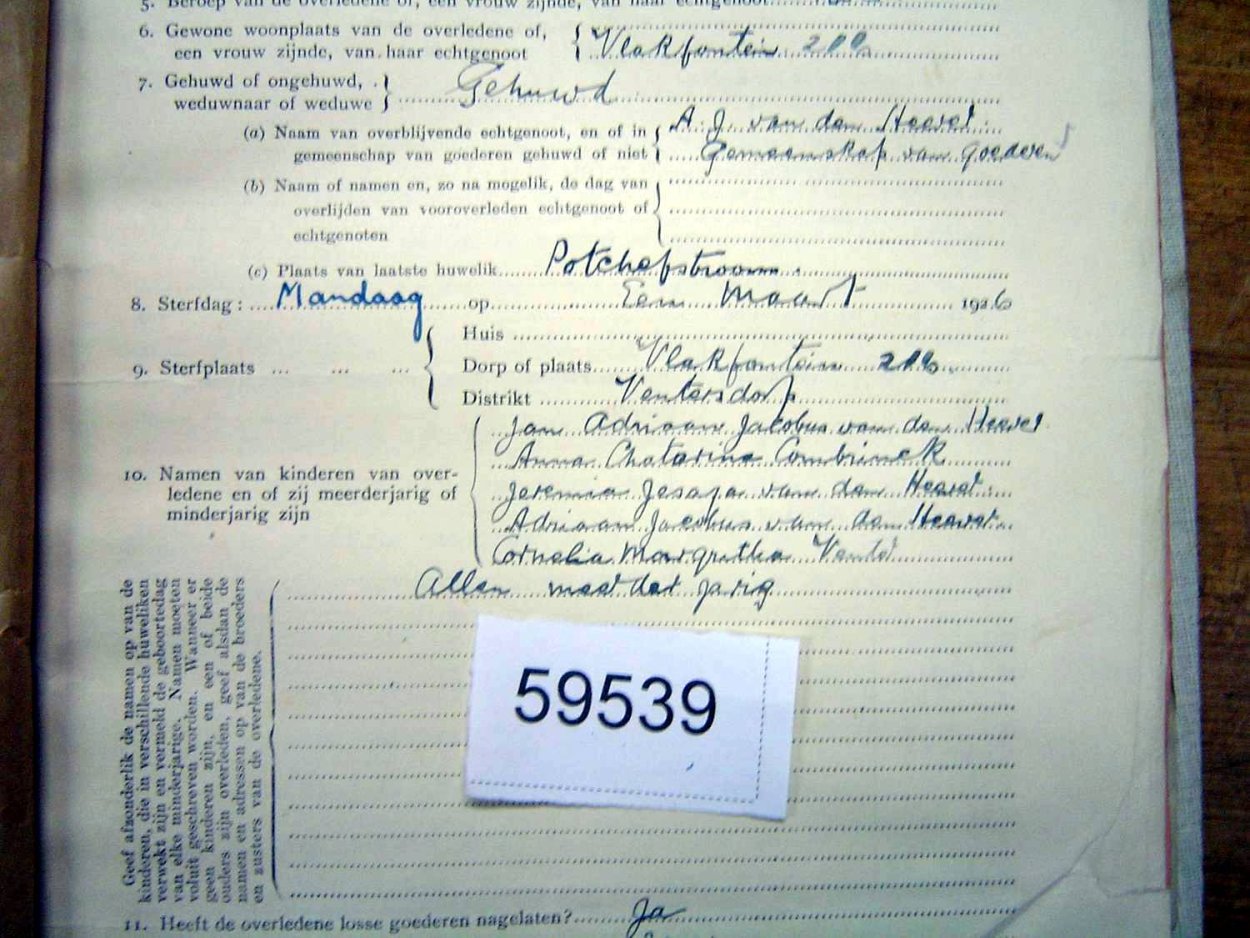 5. Beroep van de overledene of, een vrouw zijnde, van haar echtgenoot
6. Gewone woonplaats van de overledene of, Vlakfontein
een vrouw zijnde, van haar echtgenoot
7. Gehuwd of ongehuwd, Gehuwd
weduwnaar of weduwe
(a) Naam van overblijvende echtgenoot, en of in A. J. van den Heever.
gemeenschap van goederen gehuwd of niet Gemeenskap van goederen
(b) Naam of namen en, zo na mogelik, de dag van
overlijden van vooroverleden echtgenoot of
echtgenoten
(c) Plaats van laatste huwelik Potchefstroom.
8. Sterfdag: Mandaag op Een Maart 1926
9. Sterfplaats ... ... ...
Huis
Dorp of plaats Vlakfontein
Distrikt Ventersdorp
10. Namen van kinderen van over-
ledene en of zij meerderjarig of
minderjarig zijn
Jan Adriaan Jacobus van den Heever
Anna Chatarina Combrinck
Jeremia Jesaja van den Heever.
Adriaan Jacobus van den Heever.
Cornelia Margritha Venter
Allen meerder jarig
Geef afzonderlik de namen op van de
kinderen, die in verschillende huweliken
verwekt zijn en vermeld de geboortedag
van elke minderjarige. Namen moeten
voluit geschreven worden. Wanneer er
geen kinderen zijn, en een of beide
ouders zijn overleden, geef alsdan de
namen en adressen op van de broeders
en zusters van de overledene.
59539
11. Heeft de overledene losse goederen nagelaten? Ja